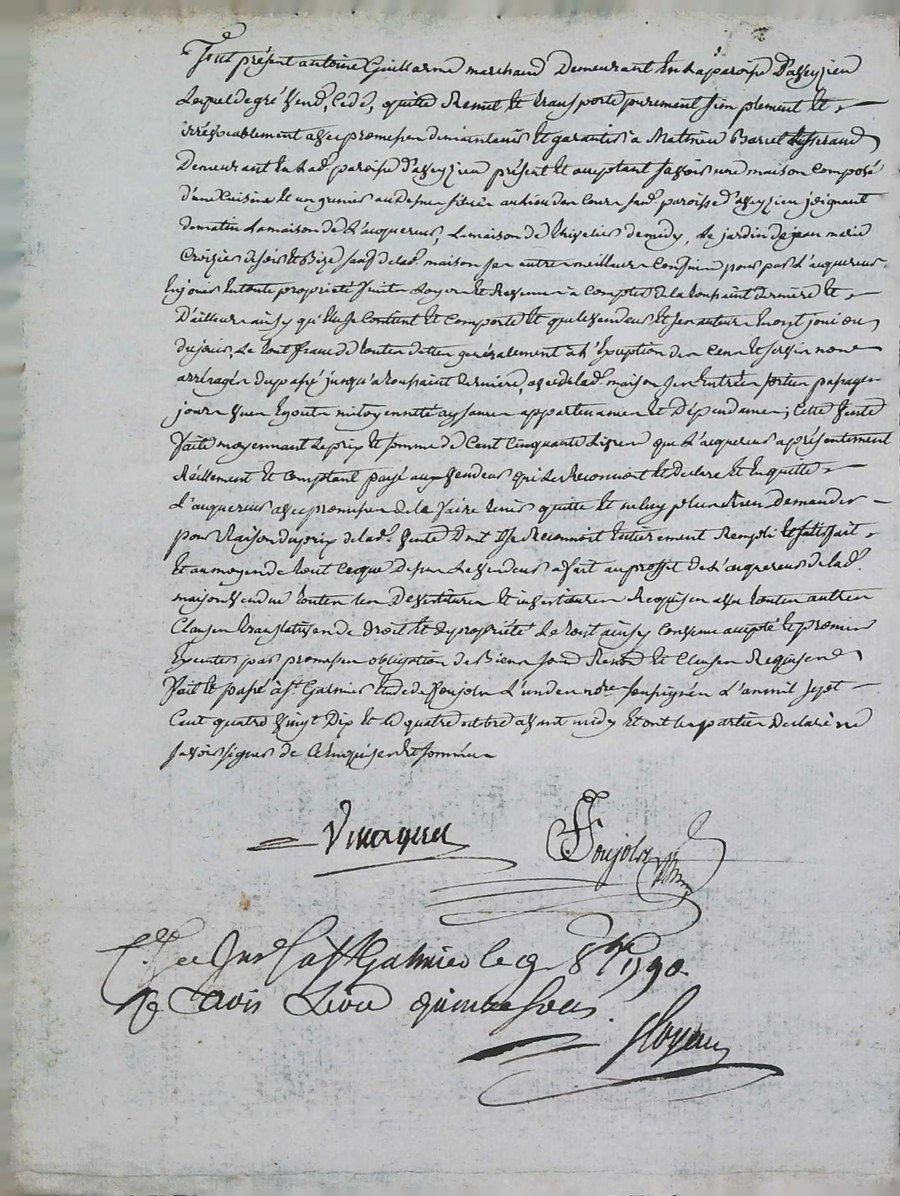 Fut présent antoine Guillarme marchand Demeurant En la paroisse D'aveyzieu
Lequel de gré Vend, Cede, quitte Remet Et transporte purement simplement Et
irrévocablement avec promesse de maintenir Et garantir à Mathieu Barcel tisserand
Demeurant En lad. paroisse D'aveyzieu présent Et acceptant savoir une maison Composé
d'une Cuisine Et un grenier au Dessus située au lieu des Cours susd. paroisse d'aveyzieu joignant
de matin La maison de L'acquereur, La maison de de midy, Le jardin de jean marie
Croizier de soir Et Bize sauf de lad. maison ses autres meilleurs Confins pour par L'acquereur
En jouir En toute propriété fruits Loyers Et Revenus à Compter de la toussaint derniere Et
D'ailleurs ainsy qu'Elle se Contient Et Comporte Et que le vendeur Et ses auteurs En ont joui ou
du jouir, Le tout franc de toutes dettes généralement à L'Exception des Cens Et servis non
arréragés du passé jusqu'a toussaint derniere, avec de lad. maison ses Entrées sorties passages
jours vues Egouts mitoyenneté aysances appartenances Et Dépendances; Cette Vente
faite moyennant Le prix Et somme de Cent Cinquante Livres que L'acquereur a présentement
Réellement Et Comptant payé au Vendeur qui Le Reconnoit Et Declare Et En quitte
L'acquereur avec promesse de le faire tenir quitte Et ne luy plus rien Demander
pour Raison du prix de lad. Vente Dont Il se Reconnoit Entierement Rempli Et satisfait
Et au moyen de tout Ce que Dessus Le Vendeur a fait au proffit de L'acquereur de lad.
maison Vendue toutes Les Devestitures Et investitures Requises avec toutes autres
Clauses translatives de droit Et de propriété Le tout ainsy Convenu accepté Et promis
Executer par promesses obligation de Biens soud Renond Et Clauses Requises
fait Et passé à St. Galmier Etude de Poujols L'un des nores soussignés L'an mil sept
Cent quatre Vingt Dix Et le quatre octbre avant midy Et ont Les parties Declaré ne
savoir signer de Ce Enquises Et sommées
Poujols
à St Galmier le 9 8bre 1790
R. trois Livre quinze sous